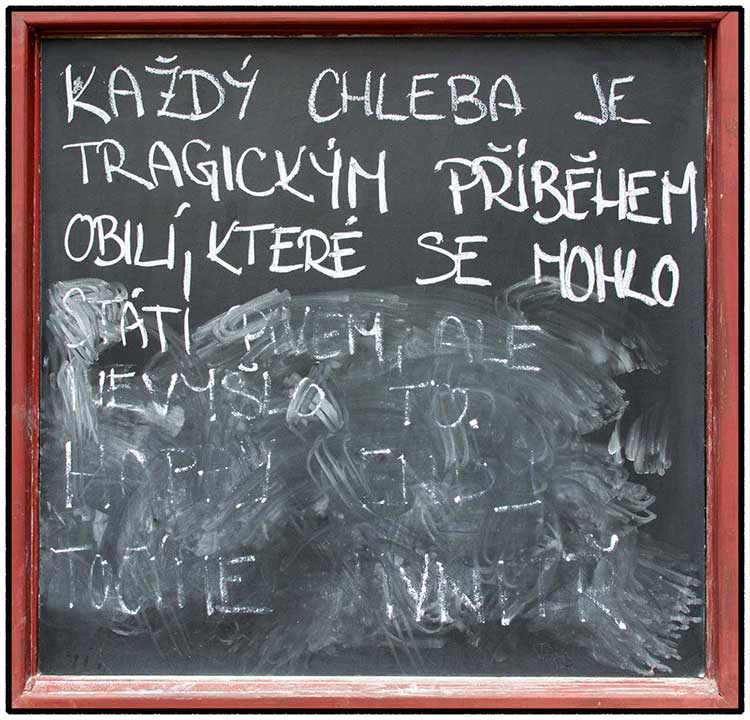 KAŽDÝ CHLEBA JE
TRAGICKÝM PŘÍBĚHEM
OBILÍ, KTERÉ SE MOHLO
STÁTI PIVEM, ALE
NEVYŠLO TO.
HAPPY END
TOČÍME